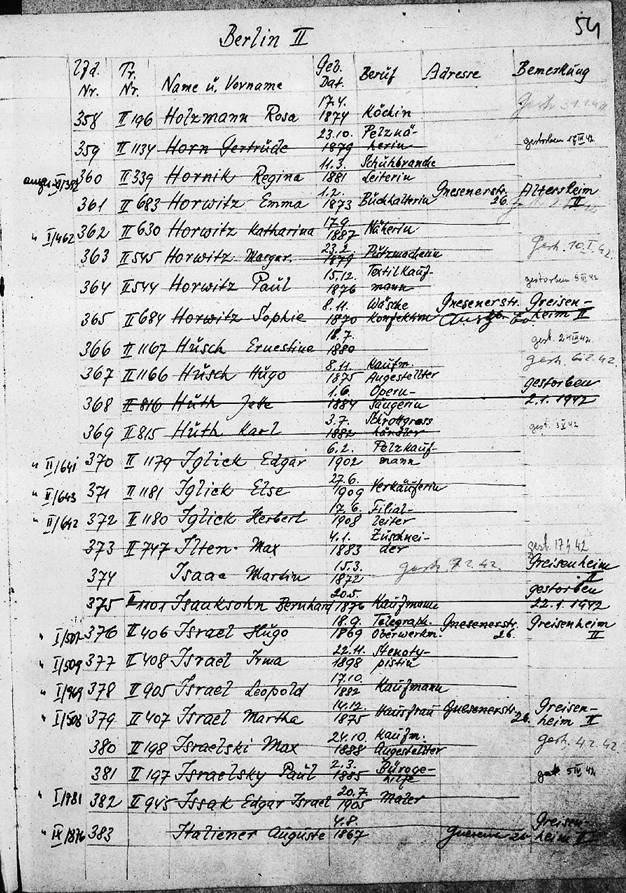 54
Berlin II
Lfd. Nr. Tr. Nr. Name u. Vorname Geb. Dat. Beruf Adresse Bemerkung
358 II 196 Holzmann Rosa 17.4. 1874 Köchin
359 II 1134 Horn Gertrude 23.10. 1879 Pelznäherin gestorben
360 II 339 Hornik Regina 11.3. 1881 Leiterin
361 II 683 Horwitz Emma 1.2. 1873 Buchhalterin Gnesenerstr. 26. Altersheim II
I/462 362 II 630 Horwitz Katharina 17.9. 1887 Näherin
363 II 545 Horwitz Margar. 23.2. 1879 Putzmacherin Gest. 10.I.42.
364 II 544 Horwitz Paul 15.12. 1876 Textilkaufmann gestorben
365 II 684 Horwitz Sophie 8.11. 1870 Wäsche Konfektion Gnesenerstr. Greisenheim II
366 II 1167 Husch Ernestine 18.7. 1880 gest.
367 II 1166 Husch Hugo 8.11. 1875 Kaufm. Angestellter gest. 6.2.42.
368 II 816 Huth Jette 1.6. 1884 Opernsängerin gestorben 2.1.1942
369 II 815 Huth Karl 3.7. 1882 gest.
" II/641 370 II 1179 Iglick Edgar 6.2. 1902 Pelzkaufmann
" II/643 371 II 1181 Iglick Else 27.6. 1909 Verkäuferin
" II/642 372 II 1180 Iglick Herbert 17.6. 1908 Filialleiter
373 II 747 Ilten Max 4.1. 1883 Zuschneider gest. 42
374 Isaac Martin 15.3. 1872 gest. 7.2.42. Greisenheim II
375 Isaaksohn Bernhard 20.5. 1876 Kaufmann gestorben 22.1.1942
" I/507 376 II 406 Israel Hugo 18.9. 1869 Telegraph. Oberwerkm. Gnesenerstr. 26. Greisenheim II
" I/509 377 II 408 Israel Irma 22.11. 1898 Stenotypistin
378 II 905 Israel Leopold 17.10. 1882 Kaufmann
" I/508 379 II 407 Israel Martha 14.12. 1875 Hausfrau Gnesenerstr. 26. Greisenheim II
380 II 198 Israelski Max 24.10. 1888 Kaufm. Angestellter gest. 4.2.42
381 II 197 Israelsky Paul 2.3. 1885 Bürogehilfe gest.
" I/981 382 II 945 Issak Edgar Israel 20.7. 1905 Maler
383 Italiener Auguste 4.8. 1867 Greisenheim II